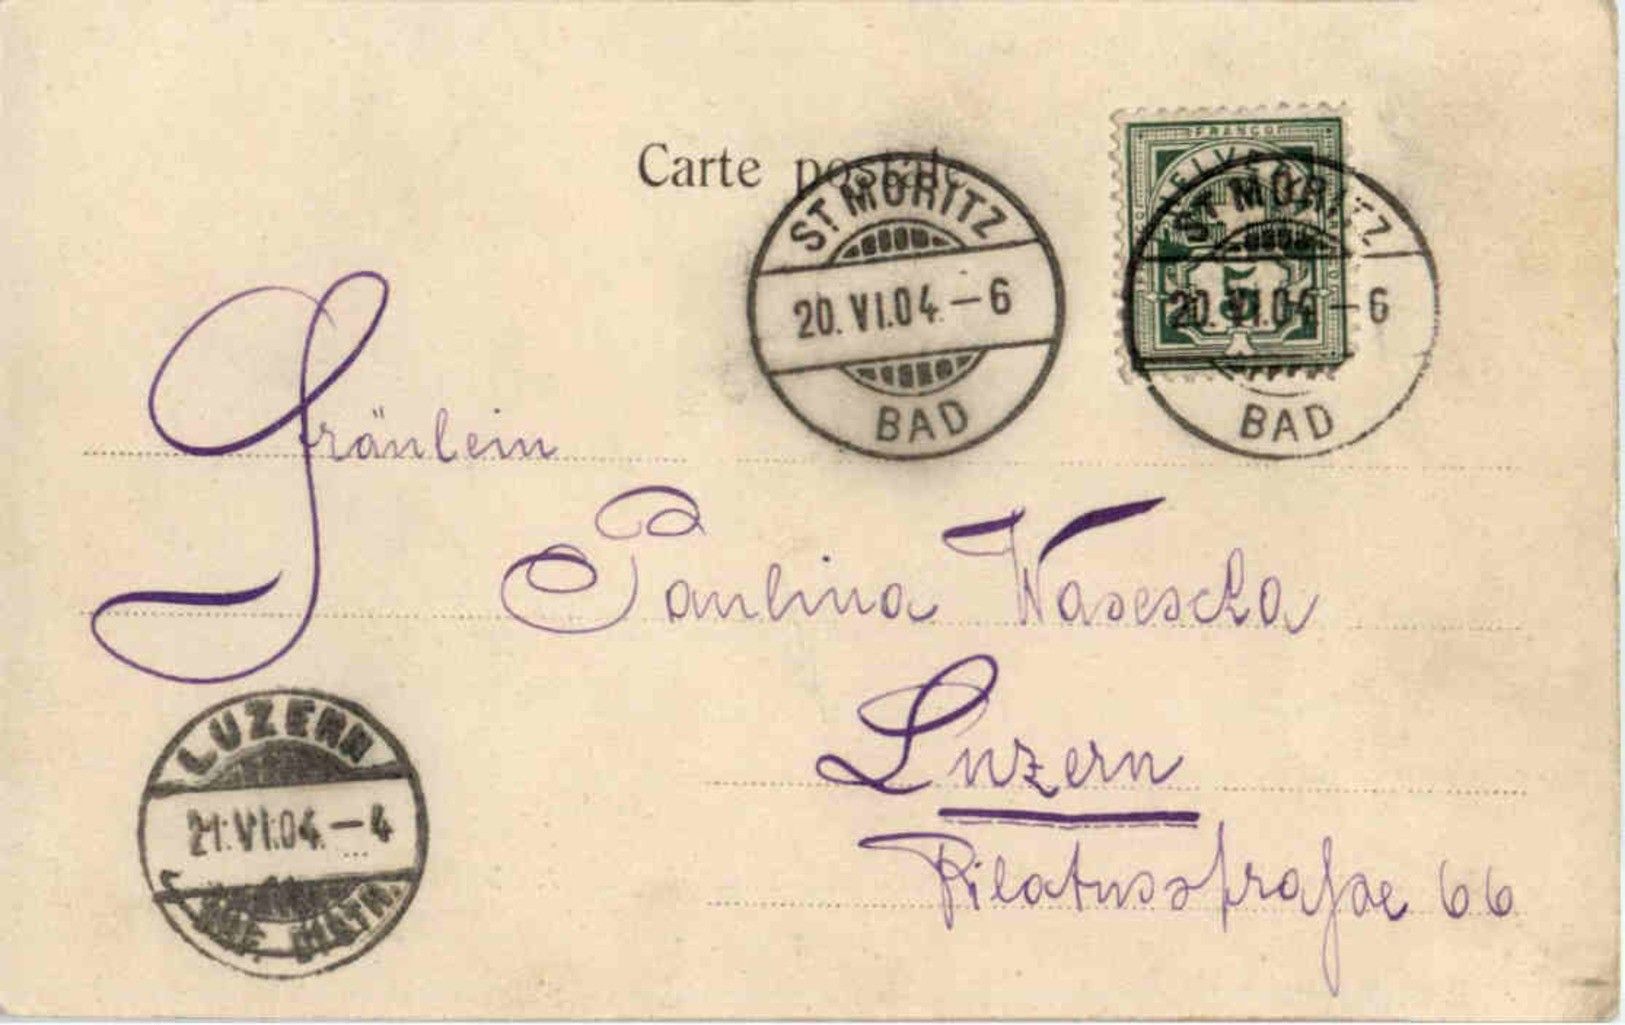 Carte postale
ST. MORITZ
20.VI.04.–6
BAD
FRANCO
HELVETIA
5
ST. MORITZ
20.VI.04.–6
BAD
Fräulein
Paulina Wasescha
Luzern
Pilatusstraße 66
LUZERN
21.VI.04.–4